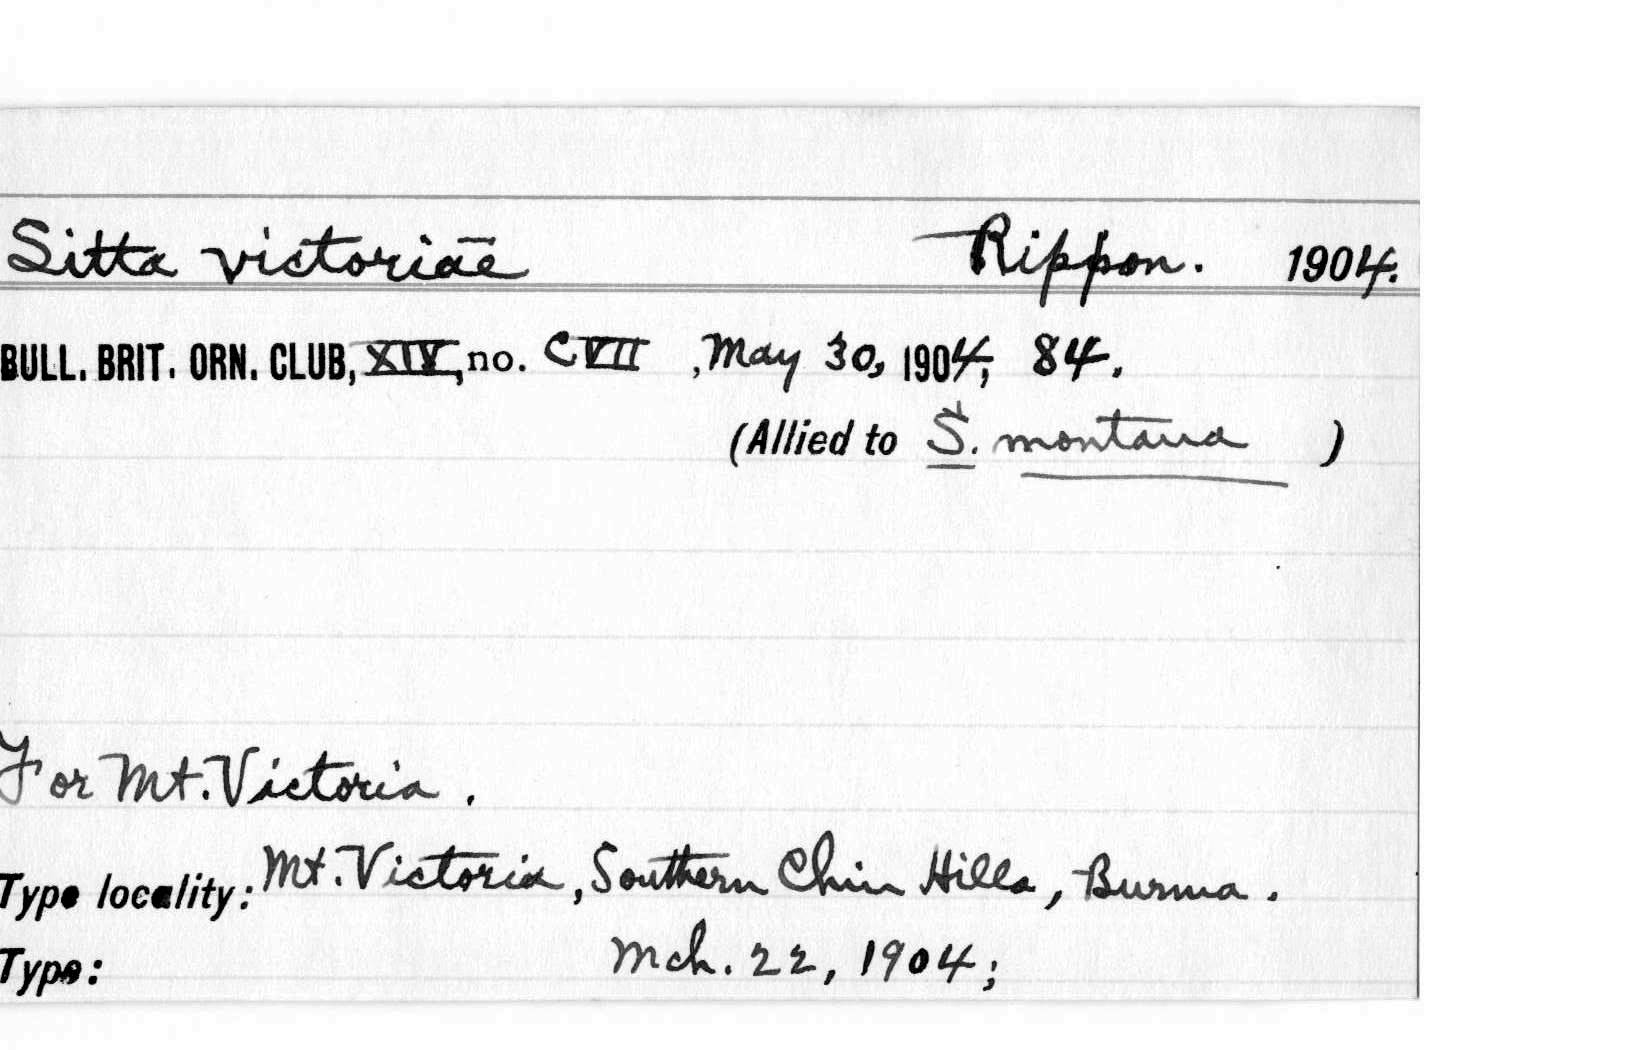 Sitta victoriae Rippon. 1904.
BULL. BRIT. ORN. CLUB, XIV, no. CVII , May 30, 1904; 84.
(Allied to S. montana )
For Mt. Victoria .
Type locality: Mt. Victoria, Southern Chin Hills, Burma .
Type: Mch. 22, 1904;